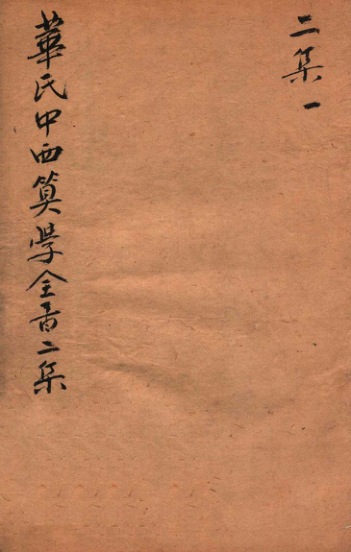 二集一
華氏中西算學全書二集